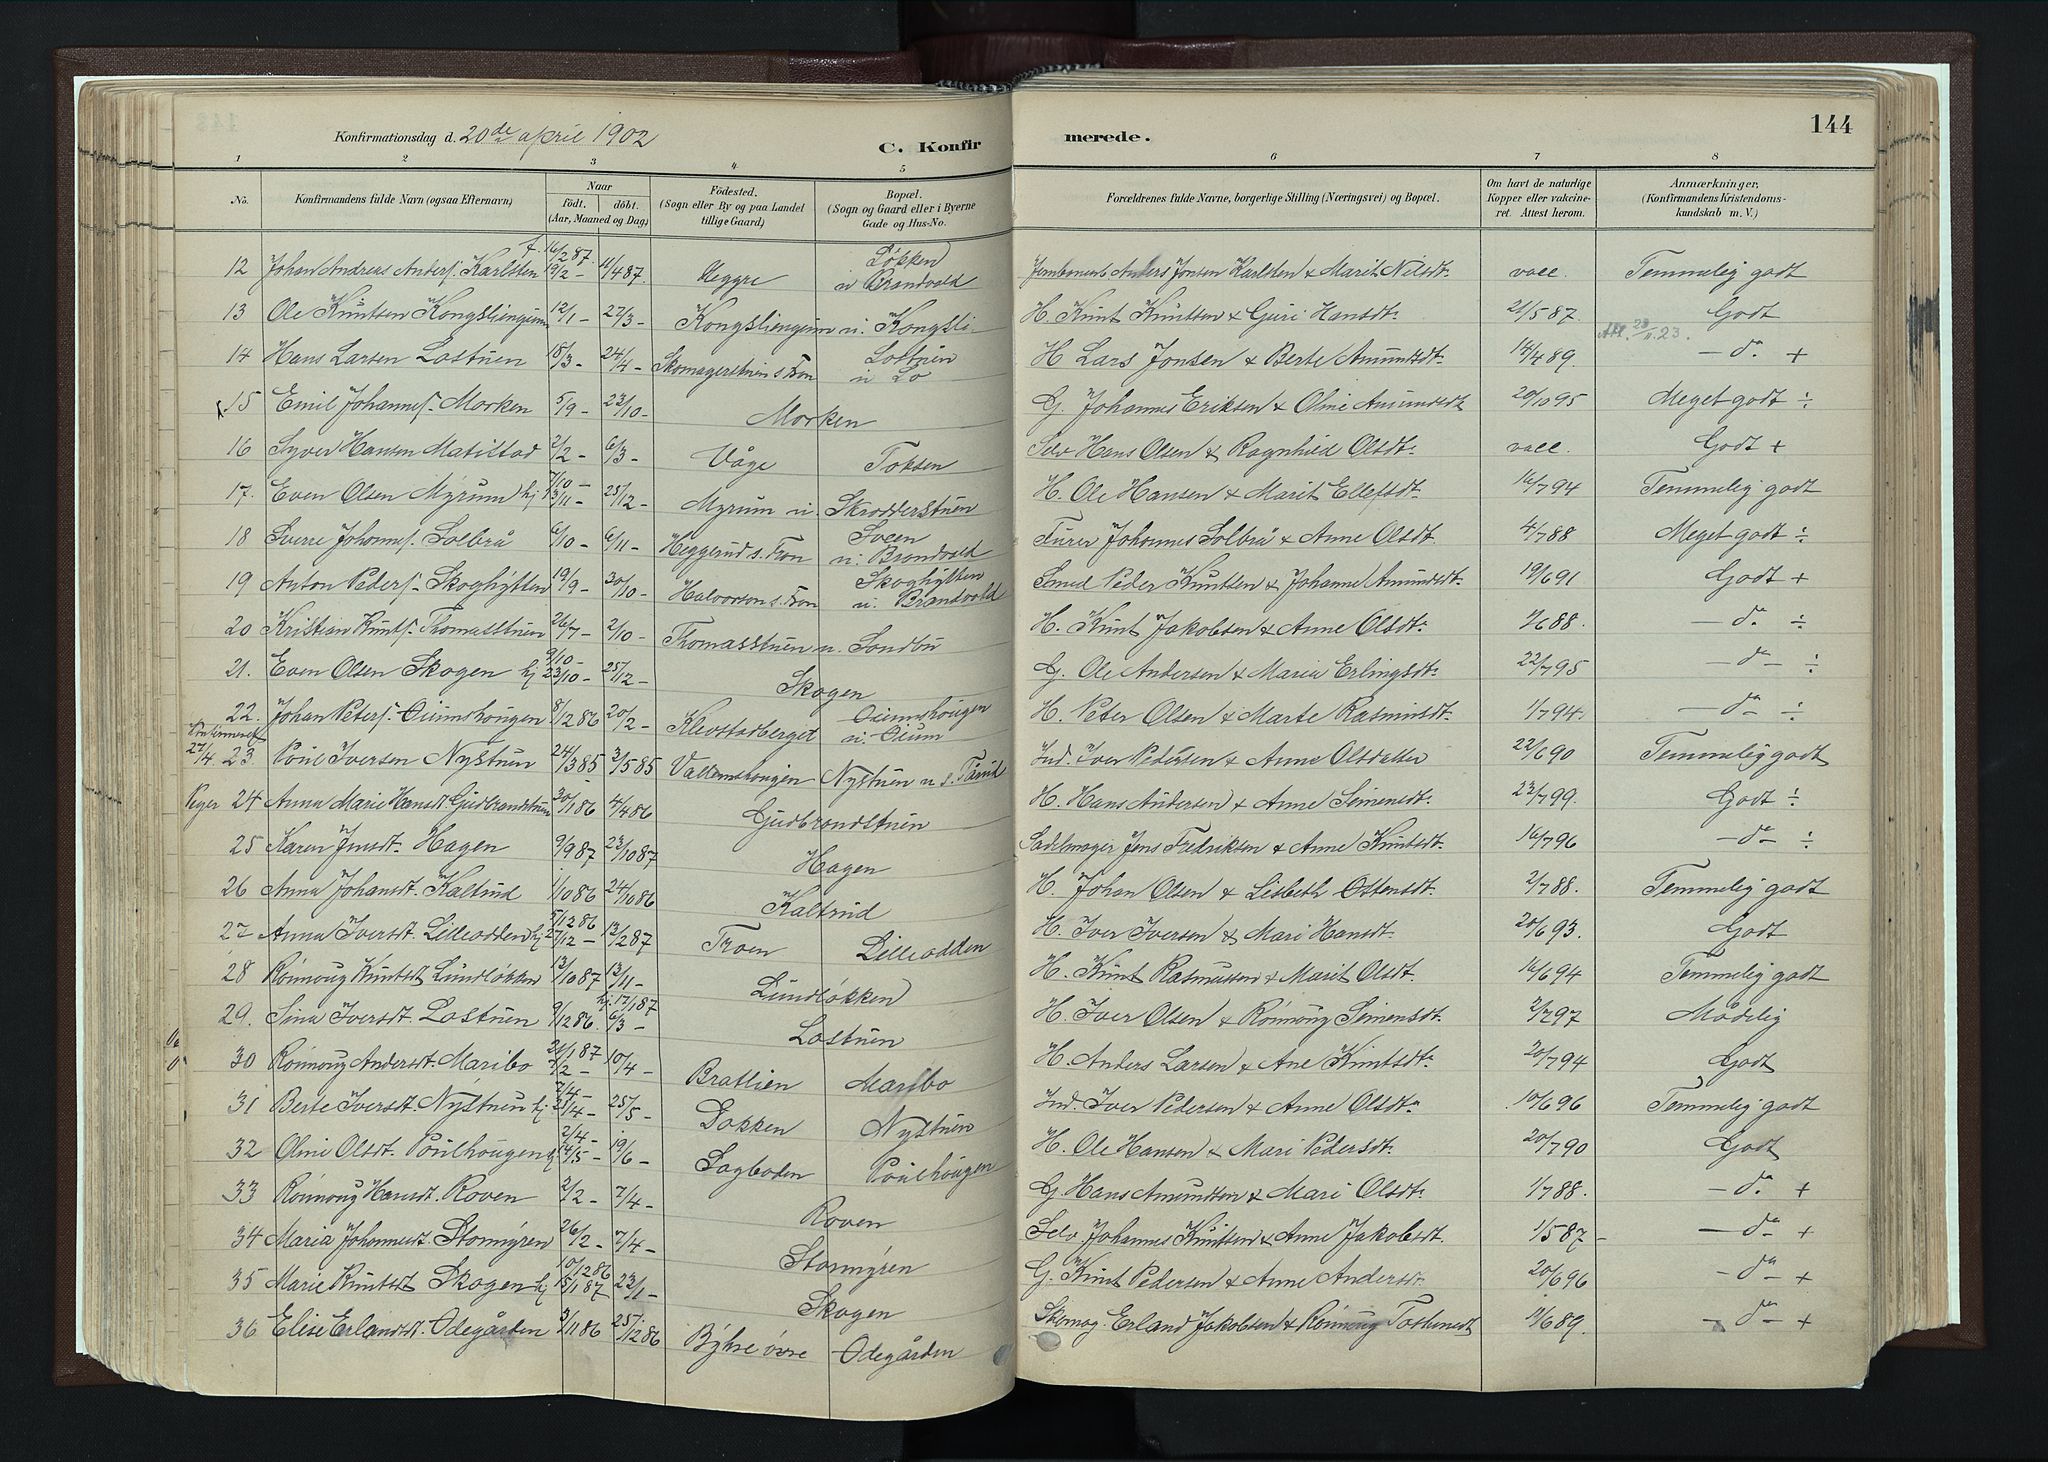 144
Konfirmationsdag d. 20de april 1902
C. Konfirmerede.
1 2 3 4 5 6 7 8
No. Konfirmandens fulde Navn (ogsaa Efternavn) Naar födt. döbt. (Aar, Maaned og Dag) Födested. (Sogn eller By og paa Landet tillige Gaard) Bopæl. (Sogn og Gaard eller i Byerne Gade og Hus-No. Forældrenes fulde Navne, borgerlige Stilling (Næringsvei) og Bopæl. Om havt de naturlige Kopper eller vakcineret. Attest herom. Anmærkninger. (Konfirmandens Kristendomskundskab m. V.)
12 Johan Andreas Anders. Karlsten f. 16/2 87 19/2 – 11/4 87. Heggre Løkken u Brandvold Jernbanearb Anders Jonsen Karlsten & Marit Nilsdt. vacc. Temmelig godt
13 Ole Knutsen Kongsliengum 12/1 – 27/3 – Kongsliengum u. Kongsli H. Knut Knutsen & Guri Hansdt. 21/5 87. Godt
Att. 23/11. 23.
14 Hans Larsen Lostuen 18/3 – 24/4 – Skomagerstuen s. Fron Lostuen u Lo H Lars Jonsen & Berte Amundsdt. 14/4 89. – do. +
15 Emil Johannes. Morken 5/9 – 23/10 – Morken G. Johannes Eriksen & Oline Amundsdt 20/10 95 Meget godt ÷
16 Syver Hansen Matilstad 2/2 – 6/3 – Våge Toksen Selv Hans Olsen & Ragnhild Olsdt. vacc. Godt +
17. Even Olsen Myrum hj 7/10 – 13/11 – 25/12 – Myrum u. Skrodderstuen H. Ole Hansen & Marit Ellefsdt. 16/7 94 Temmelig godt
18 Sverre Johannes. Solbrå 6/10 – 6/11 – Heggerud s. Fron Sveen u. Brandvold Furer Johannes Solbrå & Anne Olsdt. 4/7 88 Meget godt ÷
19 Anton Peders. Skoghytten 19/9 – 30/10 – Halvorson s. Fron Skoghytten u. Brandvold Smed Peder Knutsen & Johanne Amundsdt. 19/6 91 Godt +
20 Kristian Knuts. Thomasstuen 26/7 – 2/10 – Thomasstuen u. Sandbu H. Knut Jakobsen & Anne Olsdt. 1/6 88. – do. ÷
21. Even Olsen Skogen hj 9/10 – 23/10 – 25/12 – Skogen G. Ole Andersen & Maria Erlingsdt. 22/7 95 – do – ÷
22. Johan Peters. Oiumshougen 8/12 86 20/2 – Klevstadberget Oiumshougen u. Oium H. Peter Olsen & Marte Rasmusdt. 1/7 94. – do – ÷
Konfirmeret 27/4. 23. Poul Iversen Nystuen 24/3 85 3/5 85 Vallemshougen Nystuen u s. Tårud Ind. Iver Pedersen & Anne Olsdatter 22/6 90 Temmelig godt
Piger 24 Anna Marie Hansdt. Gudbrandstuen 30/1 86 4/4 86 Gudbrandstuen H. Hans Andersen & Anne Simensdt. 23/7 99. Godt ÷
25 Karen Jensdt. Hagen 9/9 87 23/10 87 Hagen Sadelmager Jens Fredriksen & Anne Knutsdt. 16/7 96 – do – ÷
26 Anna Johansdt. Kaltrud 1/10 86 24/10 86 Kaltrud H. Johan Olsen & Lisbeth Ostensdt. 2/7 88. Temmelig godt
27 Anna Iversdt. Lilleodden hj 5/12 86 27/12 – 13/2 87 Troen Lilleodden H. Iver Iversen & Mari Hansdt. 20/6 93. Godt
28 Rønnoug Knutsdt Lundløkken 13/10 87 13/11 – Lundløkken H. Knut Rasmussen & Marit Olsdt. 16/6 94 Temmelig godt
29. Sina Iversdt. Lostuen 9/12 86. hj. 17/1 87 6/3 – Lostuen H. Iver Olsen & Rønnoug Simensdt. 2/7 97 Mådelig
30 Rønnoug Andersdt. Maribo 21/1 87 2/2 – 10/4 – Bratlien Maribo H. Anders Larsen & Ane Knutsdt. 20/7 94 Godt
31 Berte Iversdt. Nystuen hj 2/4 – 21/4 – 25/5 – Dokken Nystuen Ind. Iver Pedersen & Anne Olsdt. 10/6 96 Temmelig godt
32 Oline Olsdt. Poulhougen hj 2/4 – 14/5 – 19/6 – Sagboden Poulhougen H. Ole Hansen & Mari Pedersdt. 20/7 90 Godt
33 Rønnoug Hansdt. Roven 2/2 – 7/4 – Roven G. Hans Amundsen & Mari Olsdt. 1/7 88. – do. +
34 Maria Johannesdt. Stormyren 26/2 – 7/4 – Stormyren Selv Johannes Knutsen & Anne Jakobsdt. 1/5 87 – – do – +
35 Marie Knutsdt Skogen hj 10/12 86 15/1 87 23/1 – Skogen G. Knut Pedersen & Anne Andersdt. 20/6 96 – do – +
36 Elise Erlandsdt. Odegården 3/11 86 25/12 86 Bykre øvre Odegården Skomag. Erland Jakobsen & Rønnoug Tostensdt 11/6 89. – do – +